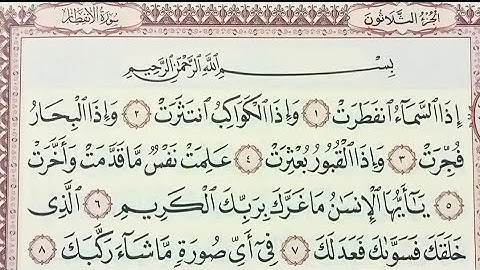 الجزء الثلاثون
سورة الانفطار
بِسْمِ ٱللَّهِ ٱلرَّحْمَٰنِ ٱلرَّحِيمِ
إِذَا ٱلسَّمَآءُ ٱنفَطَرَتْ ١ وَإِذَا ٱلْكَوَاكِبُ ٱنتَثَرَتْ ٢ وَإِذَا ٱلْبِحَارُ
فُجِّرَتْ ٣ وَإِذَا ٱلْقُبُورُ بُعْثِرَتْ ٤ عَلِمَتْ نَفْسٌ مَّا قَدَّمَتْ وَأَخَّرَتْ
٥ يَٰٓأَيُّهَا ٱلْإِنسَٰنُ مَا غَرَّكَ بِرَبِّكَ ٱلْكَرِيمِ ٦ ٱلَّذِى
خَلَقَكَ فَسَوَّىٰكَ فَعَدَلَكَ ٧ فِىٓ أَىِّ صُورَةٍ مَّا شَآءَ رَكَّبَكَ ٨